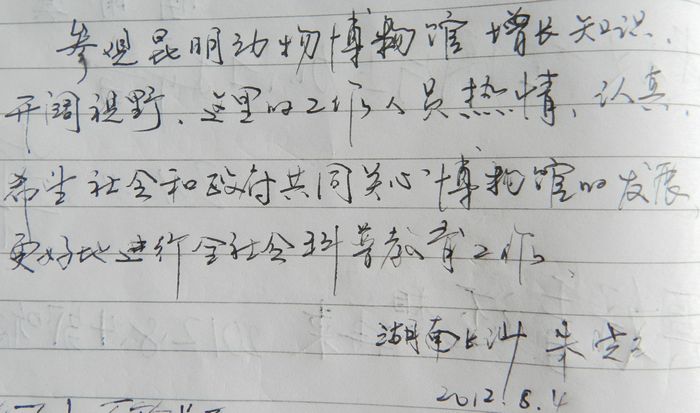 参观昆明动物博物馆 增长知识、
开阔视野、这里的工作人员热情、认真、
希望社会和政府共同关心博物馆的发展
更好地进行全社会科普教育工作。
湖南长沙 朱
2012.8.4